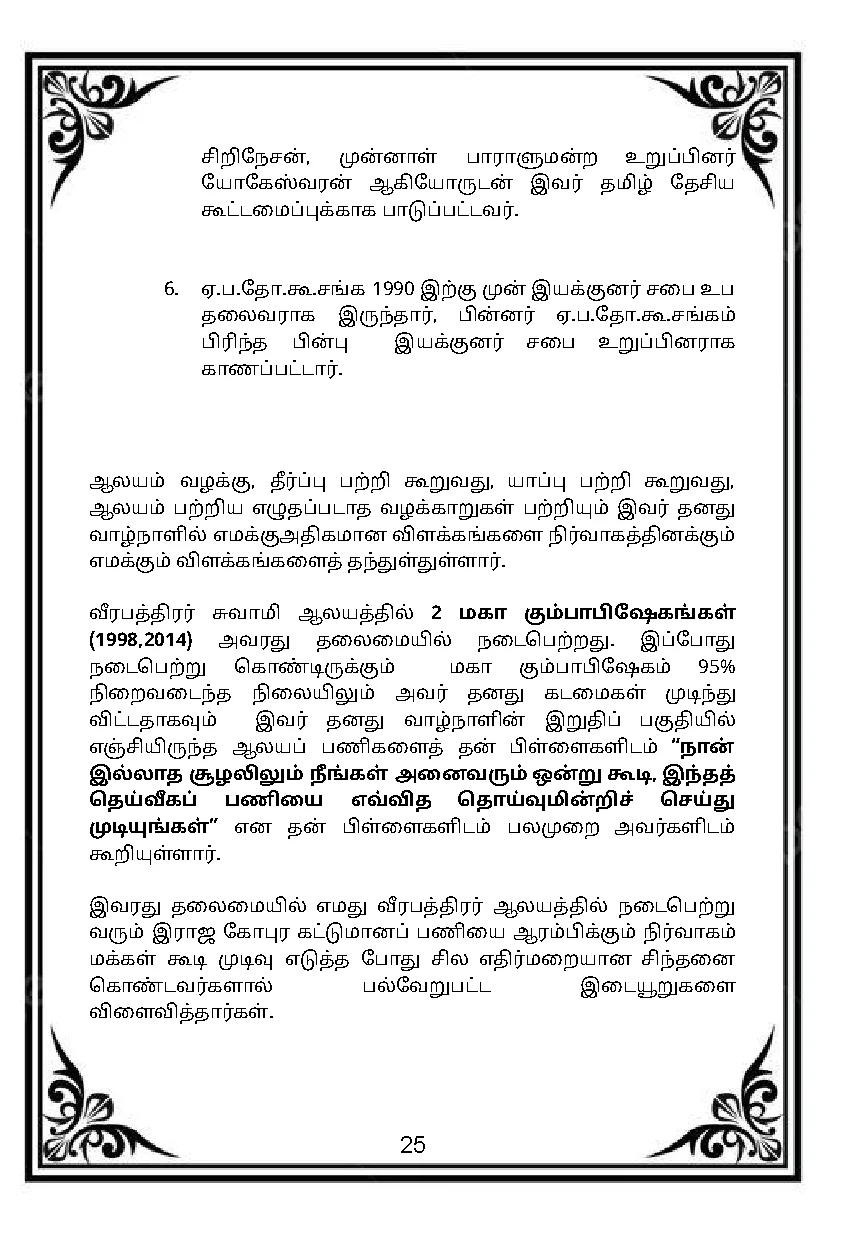 சிறிநேசன், முன்னாள் பாராளுமன்ற உறுப்பினர்
யோகேஸ்வரன் ஆகியோருடன் இவர் தமிழ் தேசிய
கூட்டமைப்புக்காக பாடுப்பட்டவர்.
6. ஏ.ப.தோ.கூ.சங்க 1990 இற்கு முன் இயக்குனர் சபை உப
தலைவராக இருந்தார், பின்னர் ஏ.ப.தோ.கூ.சங்கம்
பிரிந்த பின்பு இயக்குனர் சபை உறுப்பினராக
காணப்பட்டார்.
ஆலயம் வழக்கு, தீர்ப்பு பற்றி கூறுவது, யாப்பு பற்றி கூறுவது,
ஆலயம் பற்றிய எழுதப்படாத வழக்காறுகள் பற்றியும் இவர் தனது
வாழ்நாளில் எமக்குஅதிகமான விளக்கங்களை நிர்வாகத்தினக்கும்
எமக்கும் விளக்கங்களைத் தந்துள்துள்ளார்.
வீரபத்திரர் சுவாமி ஆலயத்தில் 2 மகா கும்பாபிஷேகங்கள்
(1998,2014) அவரது தலைமையில் நடைபெற்றது. இப்போது
நடைபெற்று கொண்டிருக்கும் மகா கும்பாபிஷேகம் 95%
நிறைவடைந்த நிலையிலும் அவர் தனது கடமைகள் முடிந்து
விட்டதாகவும் இவர் தனது வாழ்நாளின் இறுதிப் பகுதியில்
எஞ்சியிருந்த ஆலயப் பணிகளைத் தன் பிள்ளைகளிடம் “நான்
இல்லாத சூழலிலும் நீங்கள் அனைவரும் ஒன்று கூடி, இந்தத்
தெய்வீகப் பணியை எவ்வித தொய்வுமின்றிச் செய்து
முடியுங்கள்” என தன் பிள்ளைகளிடம் பலமுறை அவர்களிடம்
கூறியுள்ளார்.
இவரது தலைமையில் எமது வீரபத்திரர் ஆலயத்தில் நடைபெற்று
வரும் இராஜ கோபுர கட்டுமானப் பணியை ஆரம்பிக்கும் நிர்வாகம்
மக்கள் கூடி முடிவு எடுத்த போது சில எதிர்மறையான சிந்தனை
கொண்டவர்களால் பல்வேறுபட்ட இடையூறுகளை
விளைவித்தார்கள்.
25